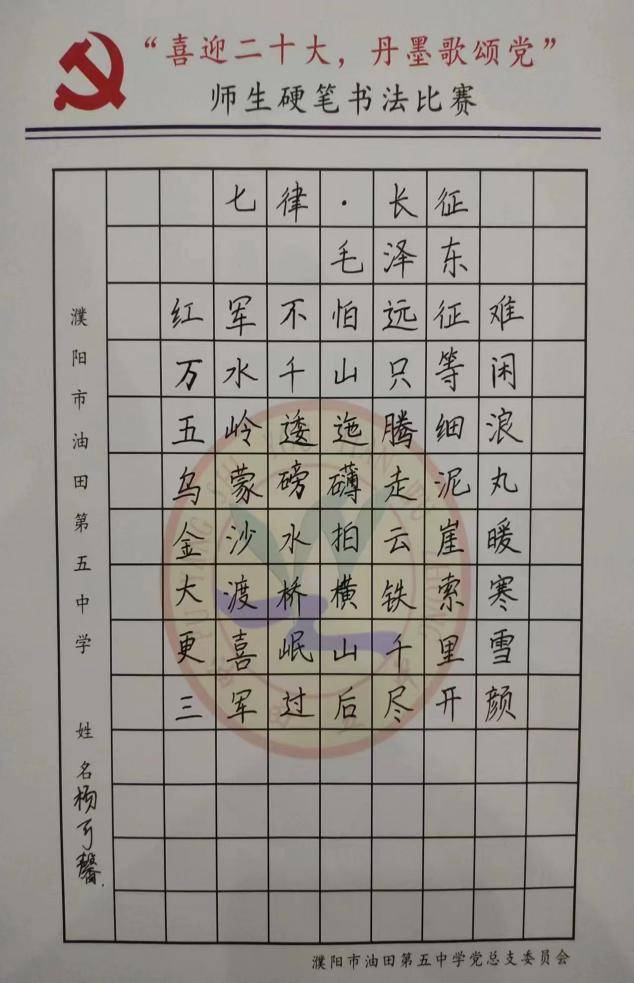 “喜迎二十大，丹墨歌颂党”
师生硬笔书法比赛
七律·长征
毛泽东
红军不怕远征难
万水千山只等闲
五岭逶迤腾细浪
乌蒙磅礴走泥丸
金沙水拍云崖暖
大渡桥横铁索寒
更喜岷山千里雪
三军过后尽开颜
濮阳市油田第五中学
姓名杨可馨
濮阳市油田第五中学党总支委员会